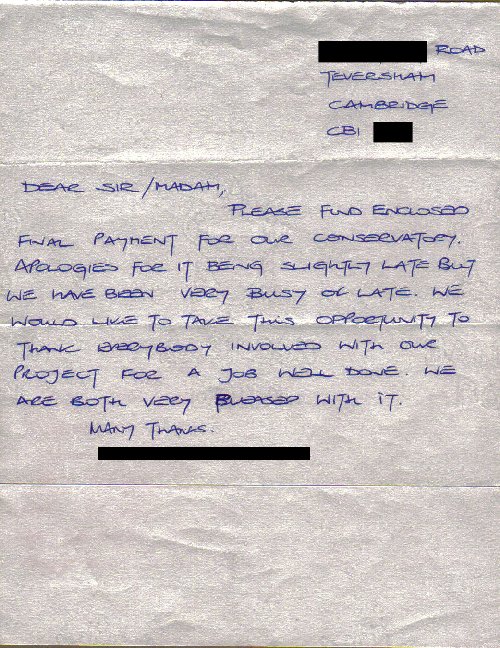 ROAD
TEVERSHAM
CAMBRIDGE
CB1
DEAR SIR/MADAM,
PLEASE FIND ENCLOSED
FINAL PAYMENT FOR OUR CONSERVATORY.
APOLOGIES FOR IT BEING SLIGHTLY LATE BUT
WE HAVE BEEN VERY BUSY OF LATE. WE
WOULD LIKE TO TAKE THIS OPPORTUNITY TO
THANK EVERYBODY INVOLVED WITH OUR
PROJECT FOR A JOB WELL DONE. WE
ARE BOTH VERY PLEASED WITH IT.
MANY THANKS.